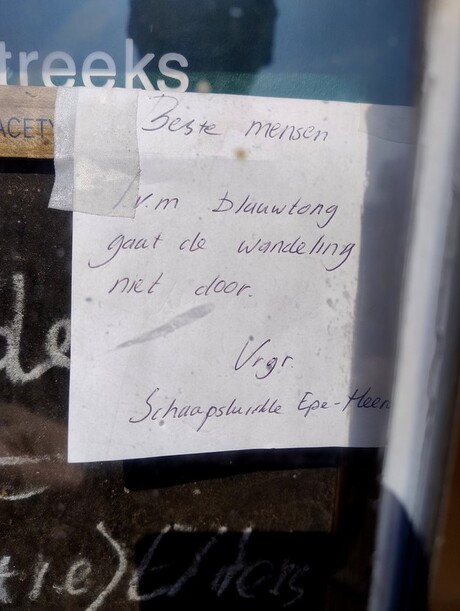 treeks
ACETY
Beste mensen
i.v.m blauwtong
gaat de wandeling
niet door.
Vrgr.
Schaapskudde Epe-Heer
de
tie)